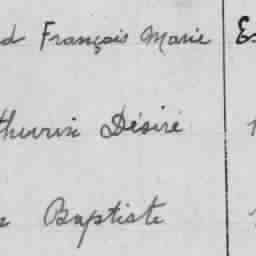 d François Marie
thurin Désiré
Baptiste